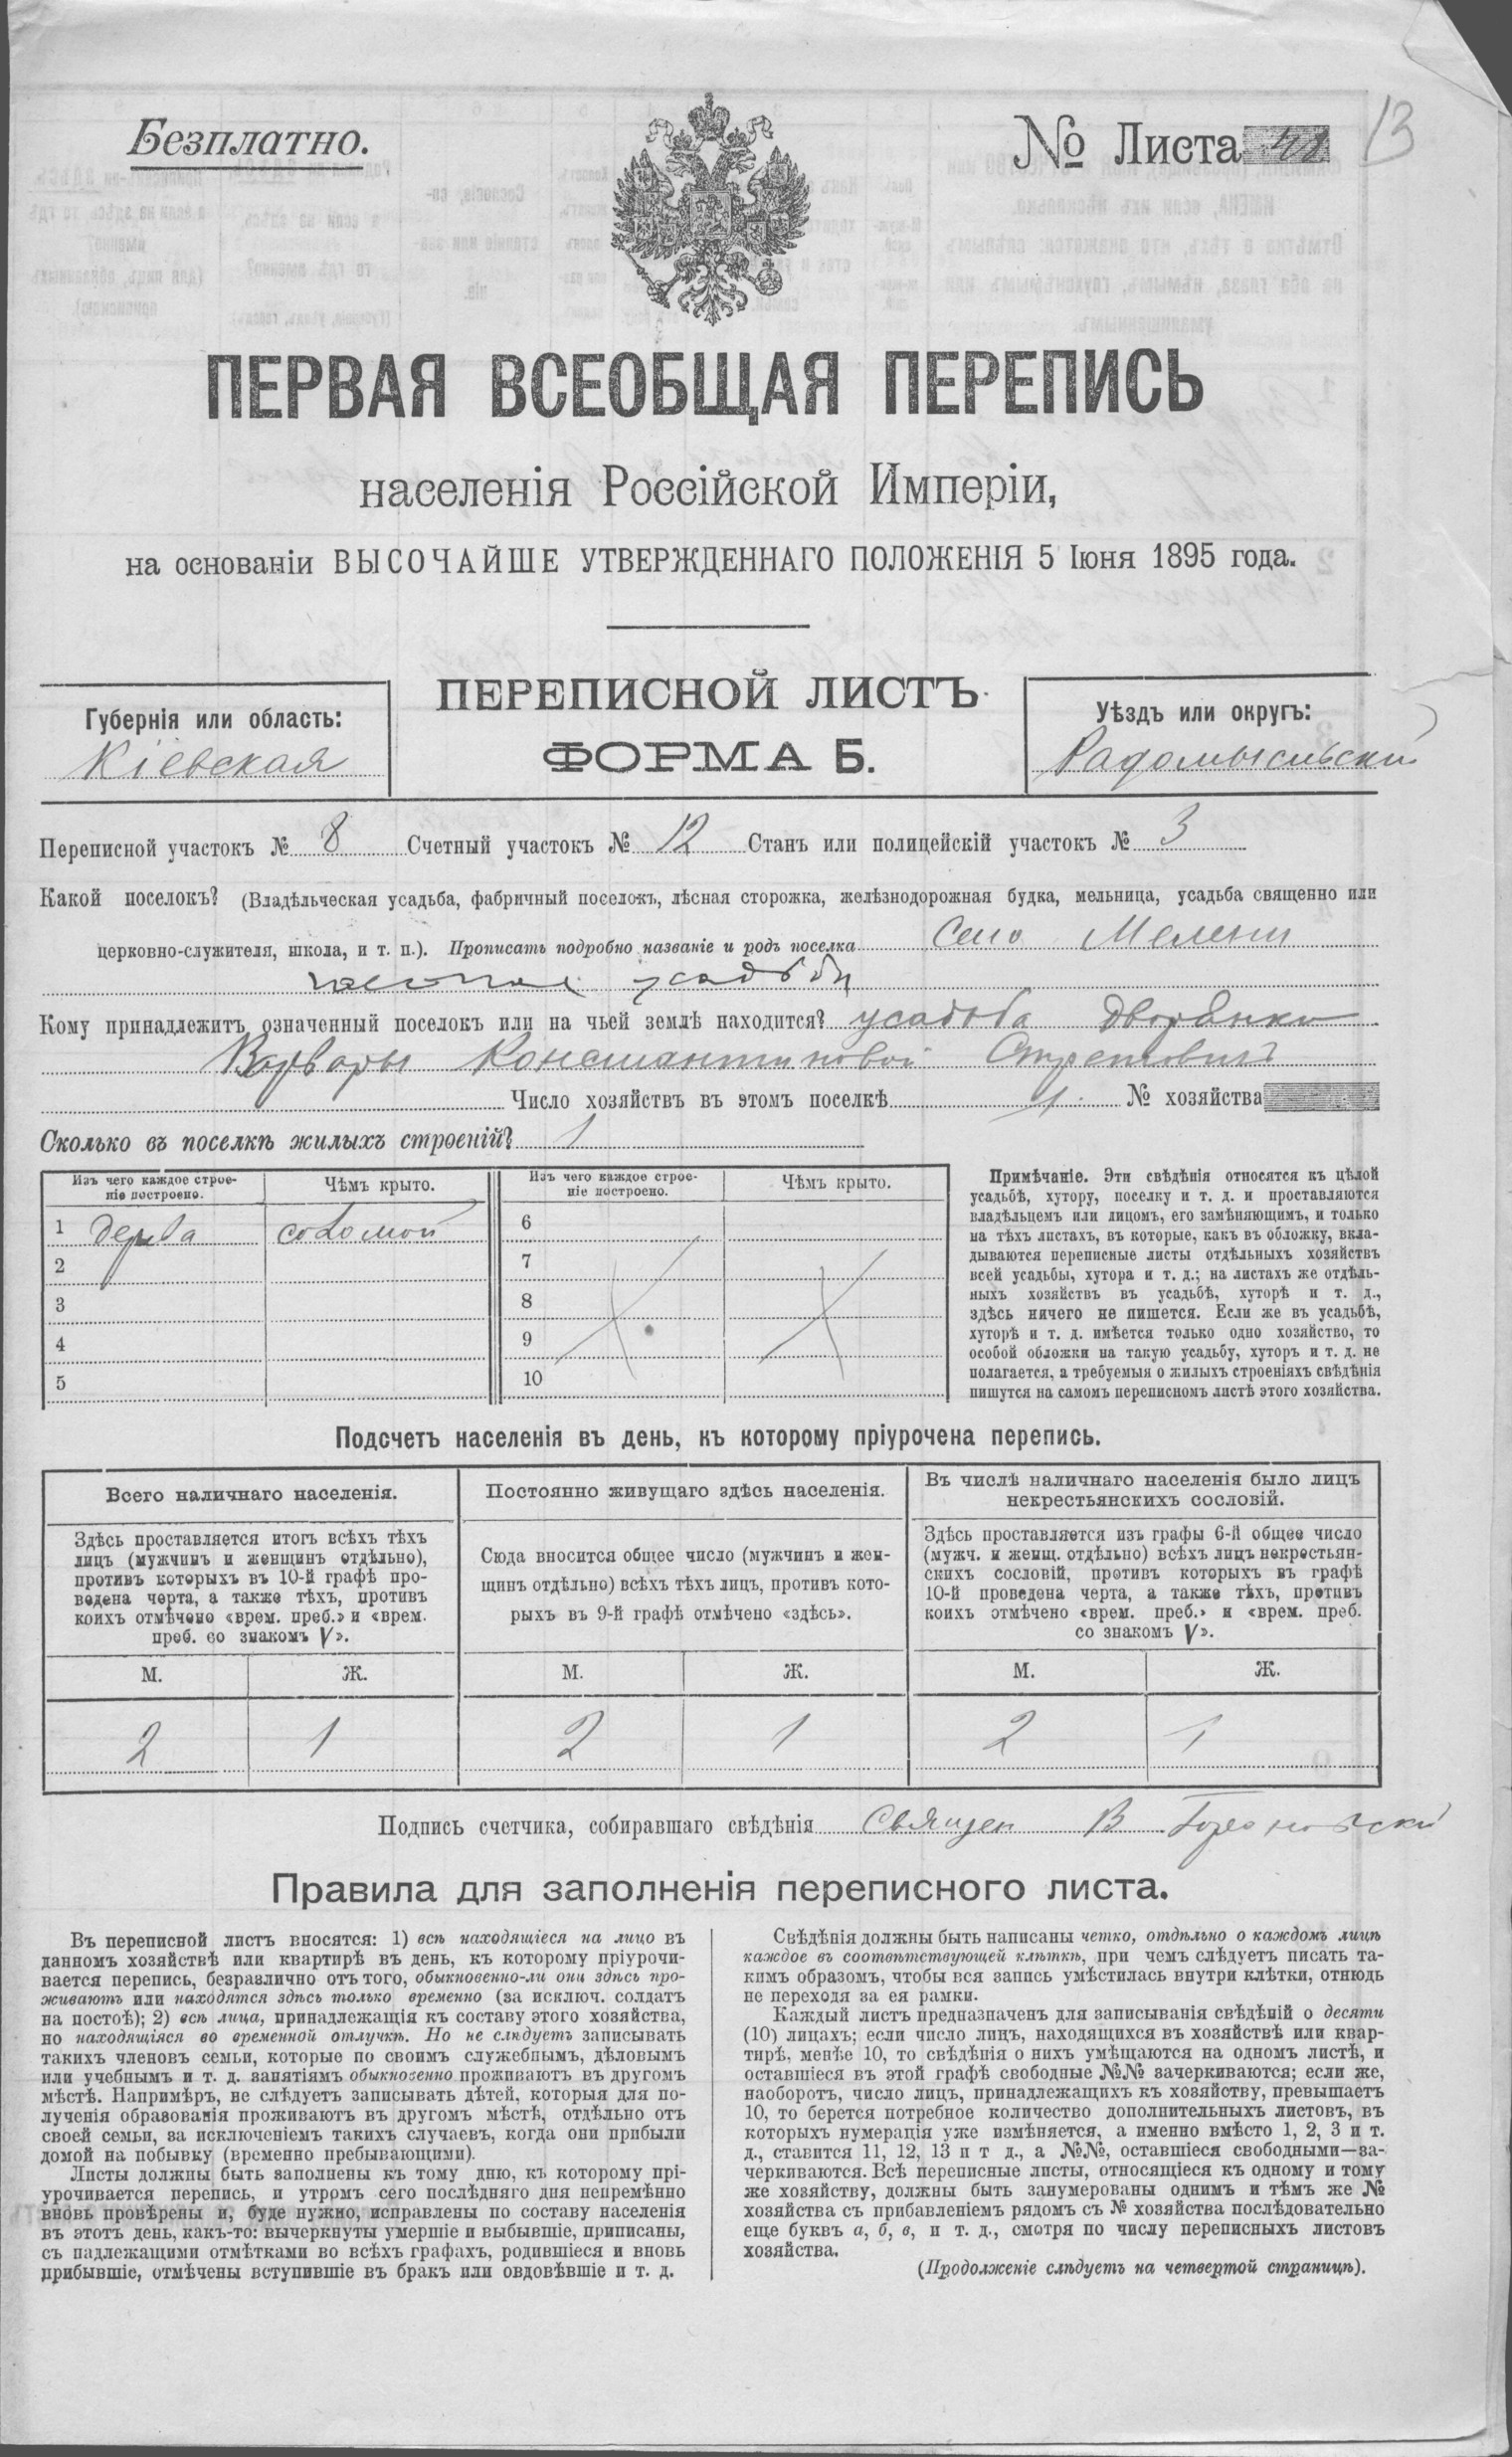 Безплатно.
№ Листа 13
ПЕРВАЯ ВСЕОБЩАЯ ПЕРЕПИСЬ
населенія Россійской Имперіи,
на основаніи ВЫСОЧАЙШЕ УТВЕРЖДЕННАГО ПОЛОЖЕНІЯ 5 Іюня 1895 года.
ПЕРЕПИСНОЙ ЛИСТЪ
ФОРМА Б.
Губернія или область:
Кіевская
Уѣздъ или округъ:
Радомысльскій
Переписной участокъ № 8 Счетный участокъ № 12 Станъ или полицейскій участокъ № 3
Какой поселокъ? (Владѣльческая усадьба, фабричный поселокъ, лѣсная сторожка, желѣзнодорожная будка, мельница, усадьба священно или
церковно-служителя, школа, и т. п.). Прописать подробно названіе и родъ поселка Село Мелени
усадьбы
Кому принадлежитъ означенный поселокъ или на чьей землѣ находится? усадьба Дворянки
Варвары Константиновой
Число хозяйствъ въ этомъ поселкѣ 1. № хозяйства
Сколько въ поселкѣ жилыхъ строеній? 1
Изъ чего каждое строе-
ніе построено.
Чѣмъ крыто.
Изъ чего каждое строе-
ніе построено.
Чѣмъ крыто.
1 дерева соломой 6
2 7
3 8
4 9
5 10
Примѣчаніе. Эти свѣдѣнія относятся къ цѣлой
усадьбѣ, хутору, поселку и т. д. и проставляются
владѣльцемъ или лицомъ, его замѣняющимъ, и только
на тѣхъ листахъ, въ которые, какъ въ обложку, вкла-
дываются переписные листы отдѣльныхъ хозяйствъ
всей усадьбы, хутора и т. д.; на листахъ же отдѣль-
ныхъ хозяйствъ въ усадьбѣ, хуторѣ и т. д.,
здѣсь ничего не пишется. Если же въ усадьбѣ,
хуторѣ и т. д. имѣется только одно хозяйство, то
особой обложки на такую усадьбу, хуторъ и т. д. не
полагается, а требуемыя о жилыхъ строеніяхъ свѣдѣнія
пишутся на самомъ переписномъ листѣ этого хозяйства.
Подсчетъ населенія въ день, къ которому пріурочена перепись.
Всего наличнаго населенія.
Здѣсь проставляется итогъ всѣхъ тѣхъ
лицъ (мужчинъ и женщинъ отдѣльно),
противъ которыхъ въ 10-й графѣ про-
ведена черта, а также тѣхъ, противъ
коихъ отмѣчено «врем. преб.» и «врем.
преб. со знакомъ V».
М. Ж.
2 1
Постоянно живущаго здѣсь населенія.
Сюда вносится общее число (мужчинъ и жен-
щинъ отдѣльно) всѣхъ тѣхъ лицъ, противъ кото-
рыхъ въ 9-й графѣ отмѣчено «здѣсь».
М. Ж.
2 1
Въ числѣ наличнаго населенія было лицъ
некрестьянскихъ сословій.
Здѣсь проставляется изъ графы 6-й общее число
(мужч. и женщ. отдѣльно) всѣхъ лицъ некрестьян-
скихъ сословій, противъ которыхъ въ графѣ
10-й проведена черта, а также тѣхъ, противъ
коихъ отмѣчено «врем. преб.» и «врем. преб.
со знакомъ V».
М. Ж.
2 1
Подпись счетчика, собиравшаго свѣдѣнія Священ В
Правила для заполненія переписного листа.
Въ переписной листъ вносятся: 1) всѣ находящіеся на лицо въ
данномъ хозяйствѣ или квартирѣ въ день, къ которому пріурочи-
вается перепись, безразлично отъ того, обыкновенно-ли они здѣсь про-
живаютъ или находятся здѣсь только временно (за исключ. солдатъ
на постоѣ); 2) всѣ лица, принадлежащія къ составу этого хозяйства,
но находящіяся во временной отлучкѣ. Но не слѣдуетъ записывать
такихъ членовъ семьи, которые по своимъ служебнымъ, дѣловымъ
или учебнымъ и т. д. занятіямъ обыкновенно проживаютъ въ другомъ
мѣстѣ. Напримѣръ, не слѣдуетъ записывать дѣтей, которыя для по-
лученія образованія проживаютъ въ другомъ мѣстѣ, отдѣльно отъ
своей семьи, за исключеніемъ такихъ случаевъ, когда они прибыли
домой на побывку (временно пребывающими).
Листы должны быть заполнены къ тому дню, къ которому прі-
урочивается перепись, и утромъ сего послѣдняго дня непремѣнно
вновь провѣрены и, буде нужно, исправлены по составу населенія
въ этотъ день, какъ-то: вычеркнуты умершіе и выбывшіе, приписаны,
съ надлежащими отмѣтками во всѣхъ графахъ, родившіеся и вновь
прибывшіе, отмѣчены вступившіе въ бракъ или овдовѣвшіе и т. д.
Свѣдѣнія должны быть написаны четко, отдѣльно о каждомъ лицѣ
каждое въ соотвѣтствующей клѣткѣ, при чемъ слѣдуетъ писать та-
кимъ образомъ, чтобы вся запись умѣстилась внутри клѣтки, отнюдь
не переходя за ея рамки.
Каждый листъ предназначенъ для записыванія свѣдѣній о десяти
(10) лицахъ; если число лицъ, находящихся въ хозяйствѣ или квар-
тирѣ, менѣе 10, то свѣдѣнія о нихъ умѣщаются на одномъ листѣ, и
оставшіеся въ этой графѣ свободные №№ зачеркиваются; если же,
наоборотъ, число лицъ, принадлежащихъ къ хозяйству, превышаетъ
10, то берется потребное количество дополнительныхъ листовъ, въ
которыхъ нумерація уже измѣняется, а именно вмѣсто 1, 2, 3 и т.
д., ставится 11, 12, 13 и т д., а №№, оставшіеся свободными—за-
черкиваются. Всѣ переписные листы, относящіеся къ одному и тому
же хозяйству, должны быть занумерованы однимъ и тѣмъ же №
хозяйства съ прибавленіемъ рядомъ съ № хозяйства послѣдовательно
еще буквъ а, б, в, и т. д., смотря по числу переписныхъ листовъ
хозяйства.
(Продолженіе слѣдуетъ на четвертой страницѣ).